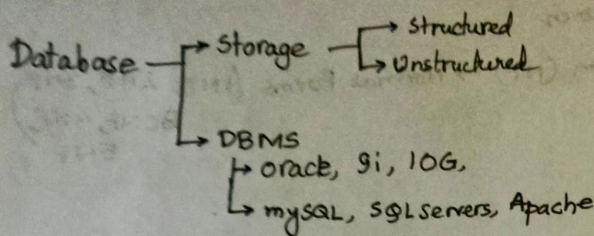 Database
Storage
Structured
Unstructured
DBMS
oracle, 9i, 10G,
mySQL, SQL servers, Apache